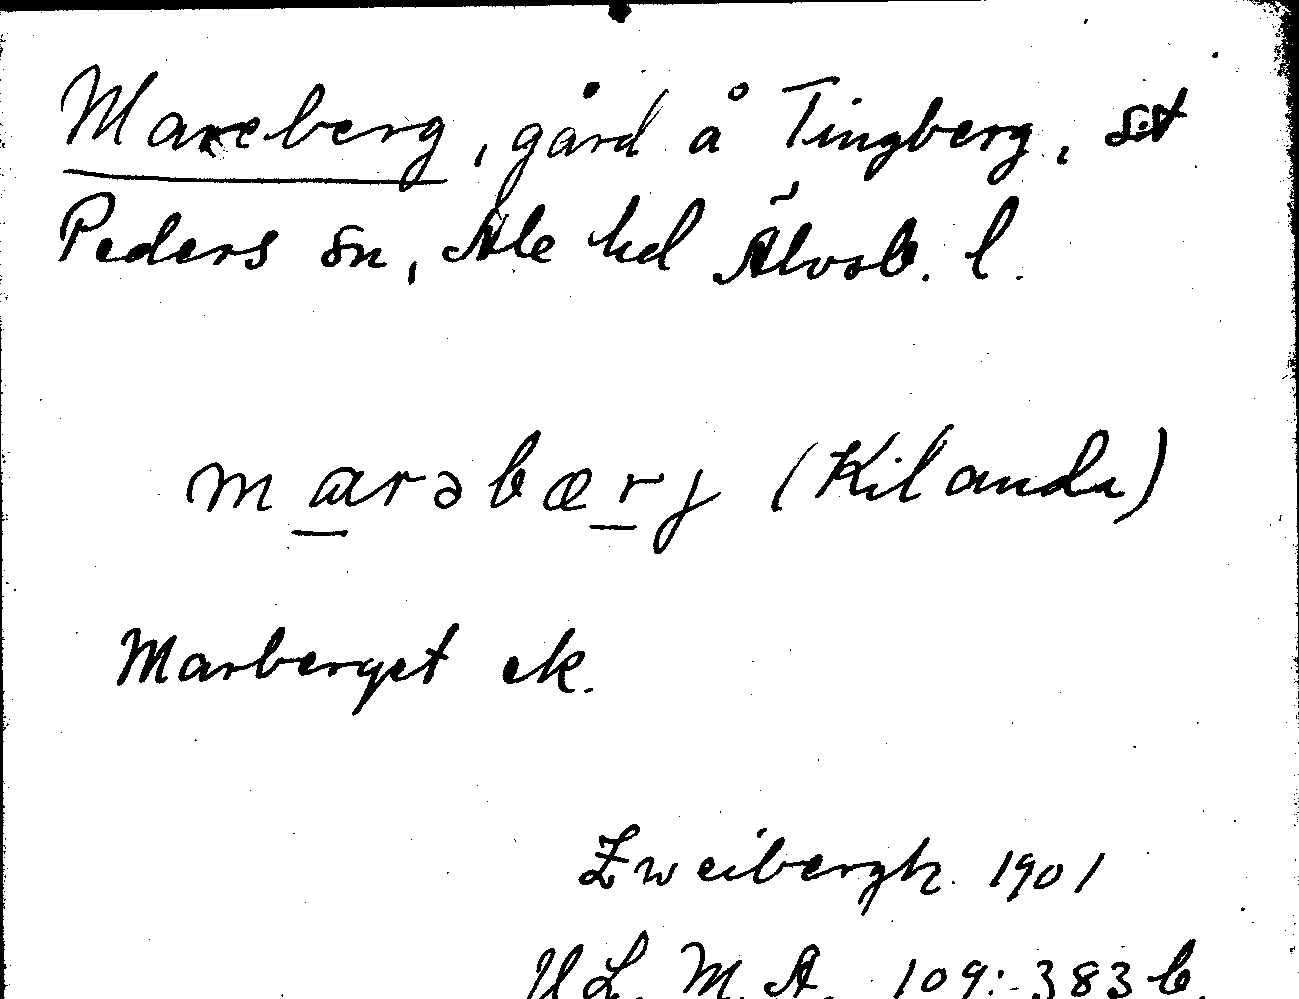 Mareberg, gård å Tingberg, S:t
Peders sn, Ale hd Älvsb. l.
marəbærj (Kilanda)
Marberget ek.
Zweibergk 1901
ULMA 109: 383 b.